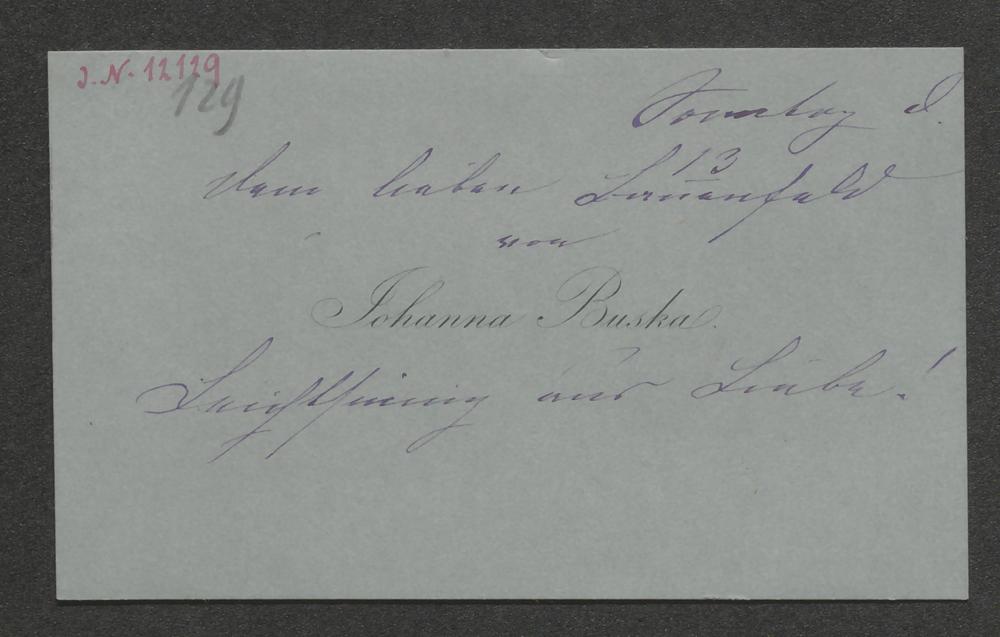 J.N. 12129
129
Sonntag d.
13
Dem lieben Bauernfeld
von
Johanna Buska.
Leichtsinnig aus Liebe!